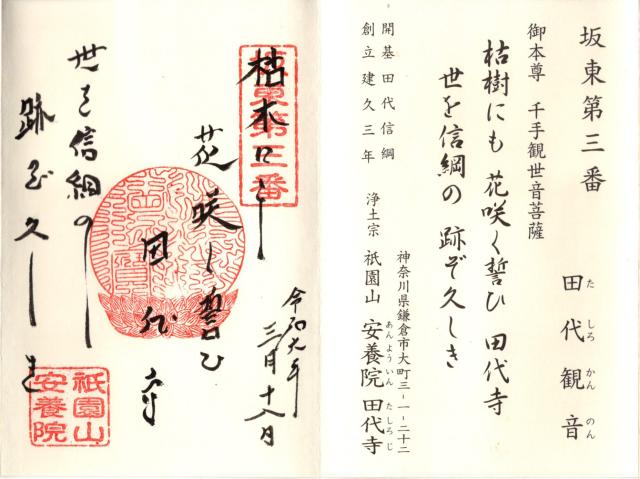 坂東第三番
田代観音
た しろ かん のん
御本尊 千手観世音菩薩
枯樹にも 花咲く誓ひ 田代寺
世を信綱の 跡ぞ久しき
開基田代信綱
創立建久三年
神奈川県鎌倉市大町三-一-二十二
浄土宗 祇園山 安養院 田代寺
あんよういん たしろじ
坂東第三番
枯木に
花咲く誓ひ
田代寺
世を信綱の
跡ぞ久しき
三月十八日
祇園山
安養院